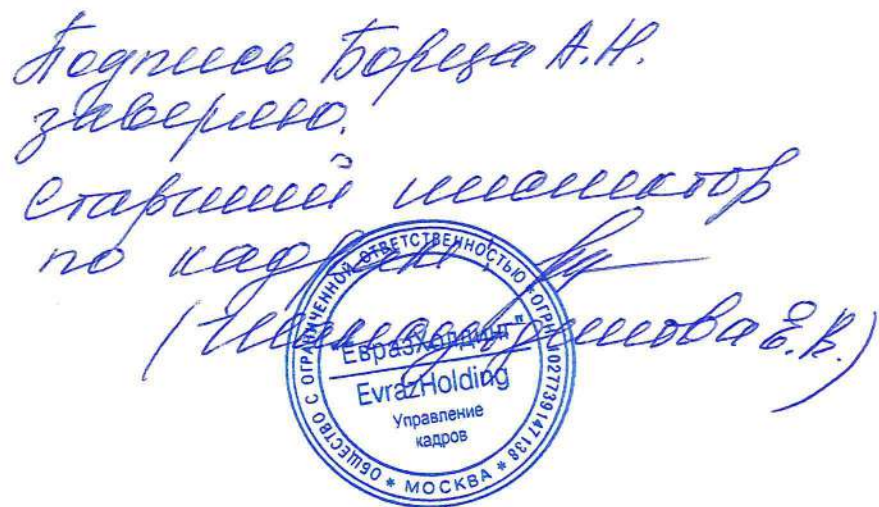 Подпись Борща А.Н.
заверяю.
Старший инспектор
по кадрам
Е.В.)
ОБЩЕСТВО С ОГРАНИЧЕННОЙ ОТВЕТСТВЕННОСТЬЮ * ОГРН 1027739147138 * МОСКВА *
"ЕвразХолдинг"
EvrazHolding
Управление
кадров